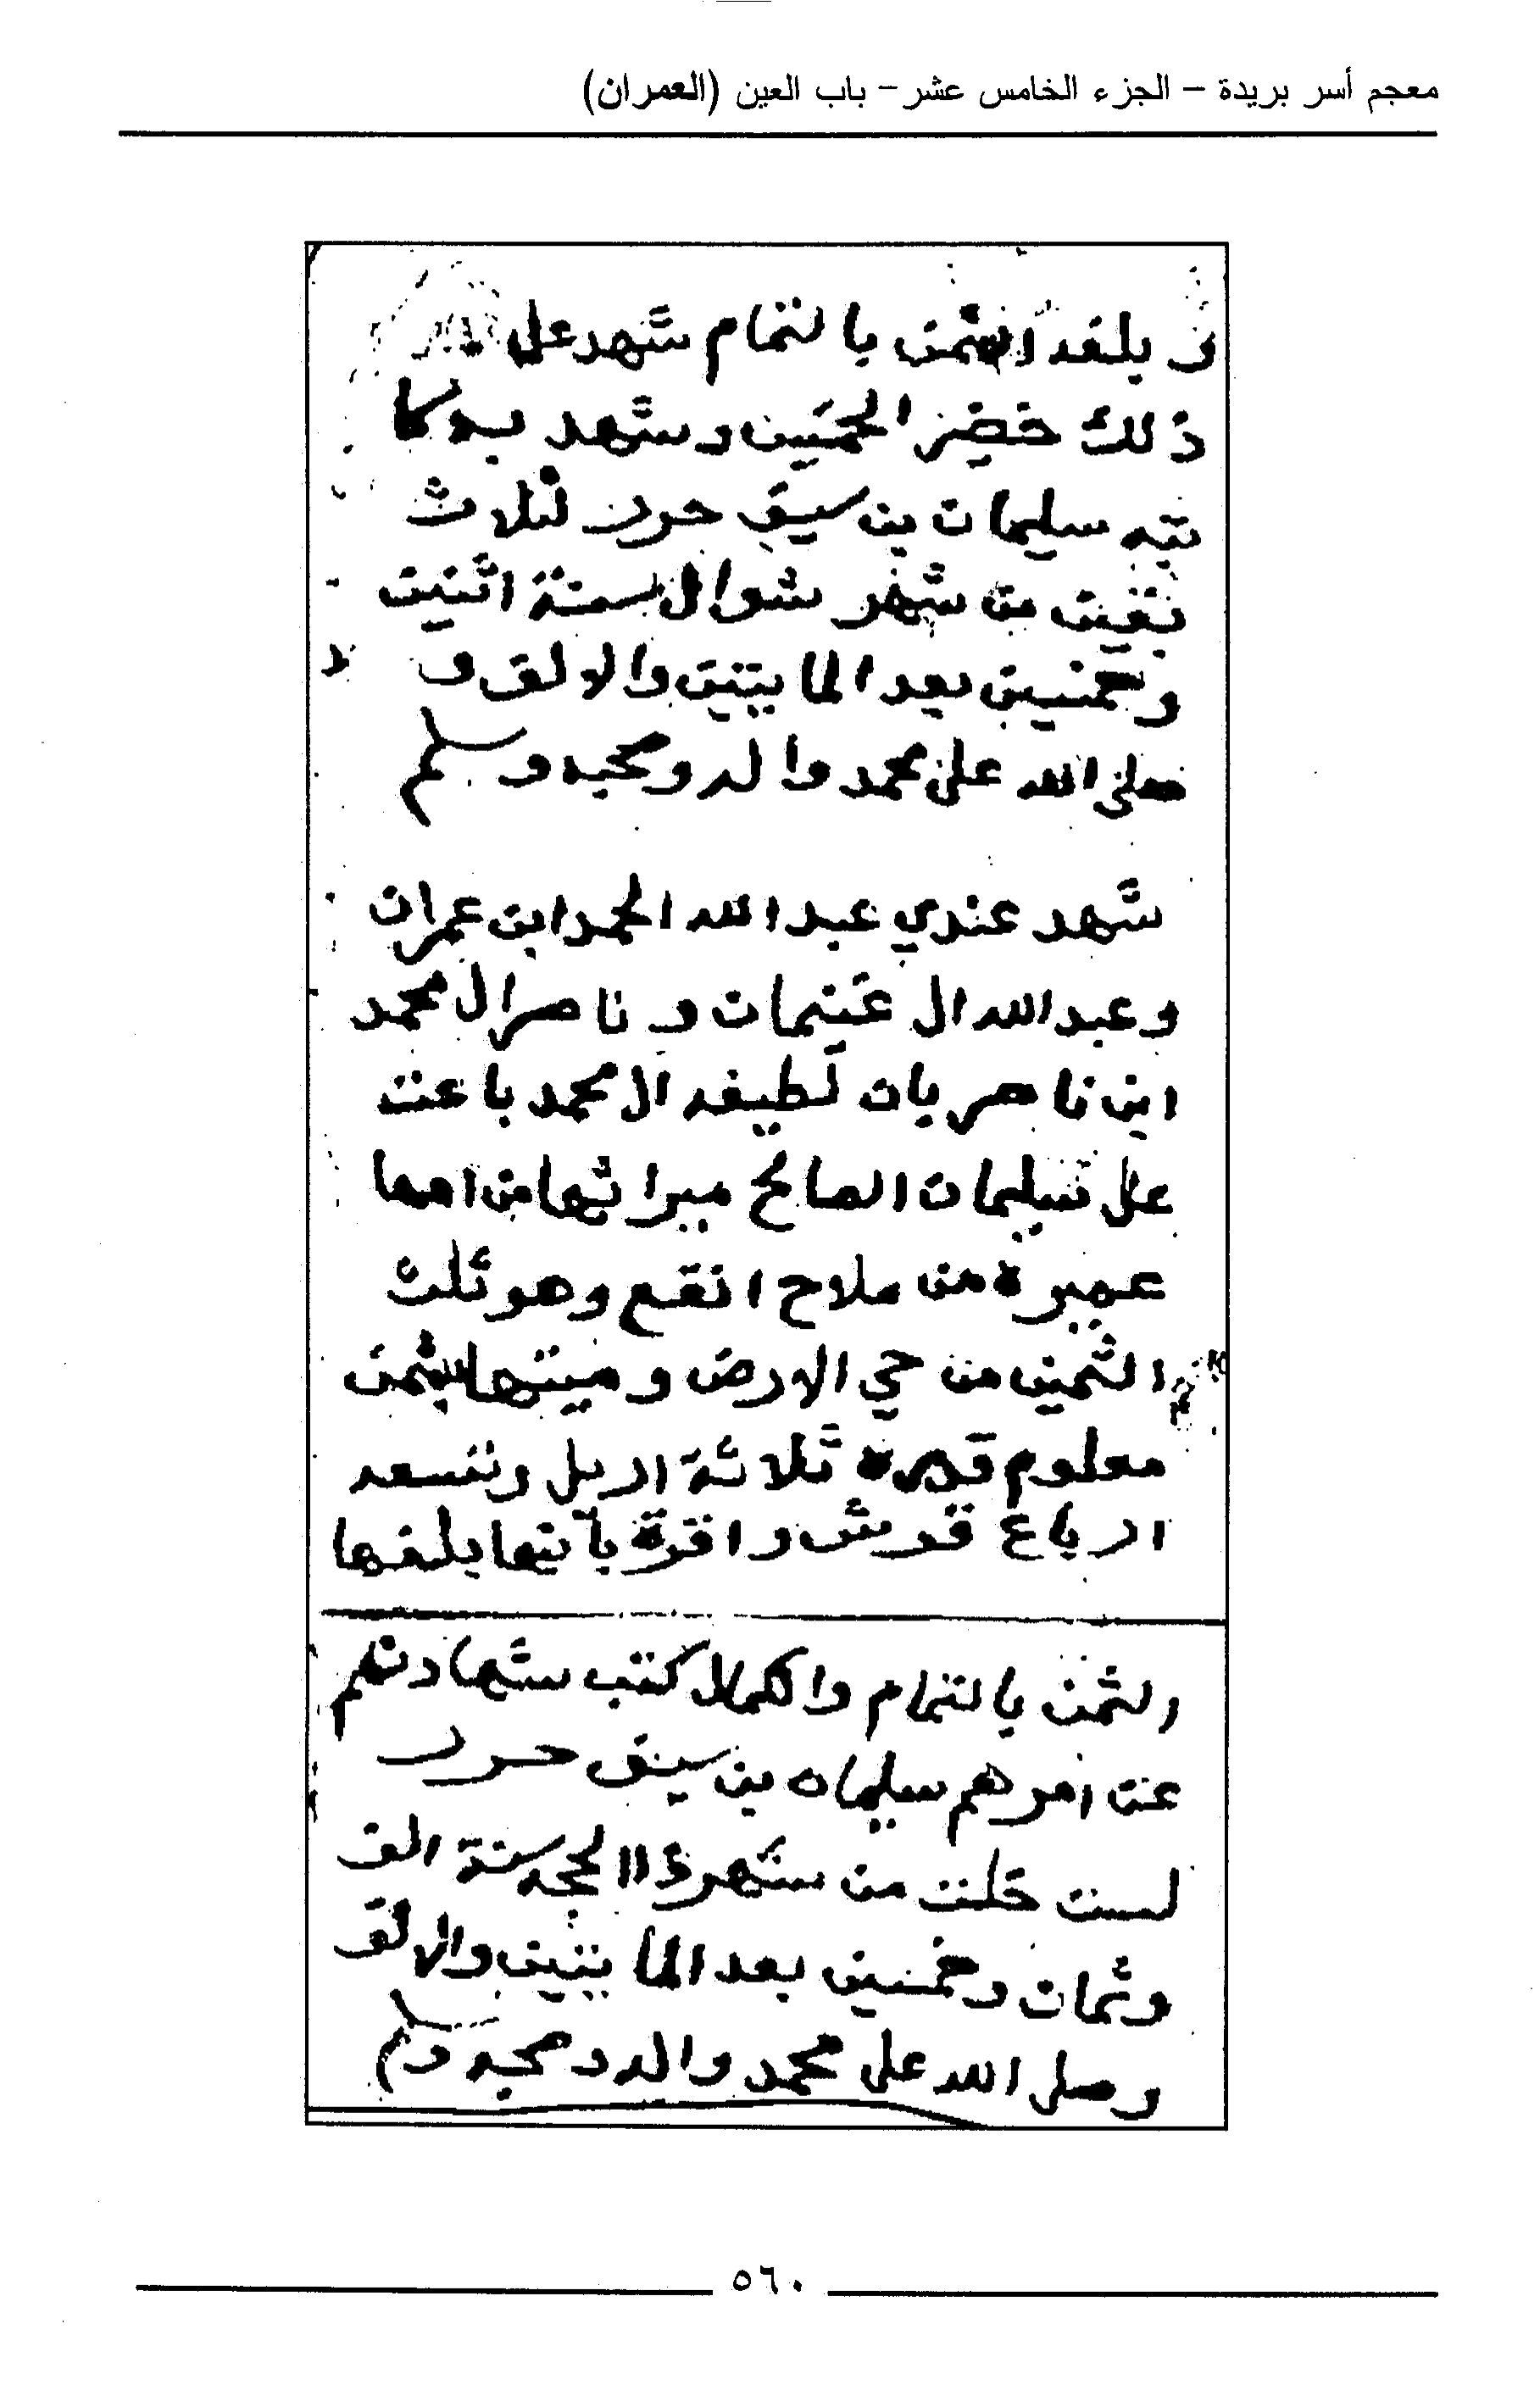 معجم أسر بريدة – الجزء الخامس عشر – باب العين (العمران)
بلغه الثمن بالتمام شهد على
ذلك خضير الحميين وشهد به كا
تبه سليمان بن سيف حرر لثلاث
بقين من شهر شوال سنة اثنين
وخمسين بعد المايتين والالف و
صلى الله على محمد واله وصحبه وسلم
شهد عندي عبدالله الحمد ابن عمران
وعبدالله ال عثمان و ناصر ال محمد
ابن ناصر بان لطيفه ال محمد باعت
على سليمان الصالح ميراثها من امها
عميره من ملاح انقع وهو ثلث
الثمين من حي الارض وميتها بثمن
معلوم قدره ثلاثة اريل وتسعه
ارباع قروش واقرة بأنها بلغها
الثمن بالتمام والكمال كتب شهادتهم
عن امرهم سليمان بن سيف حرر
لست خلت من شهر ذ الحجه سنة الف
وثمان وخمسين بعد المايتين والالف
وصلى الله على محمد واله وصحبه وسلم
٥٦٠